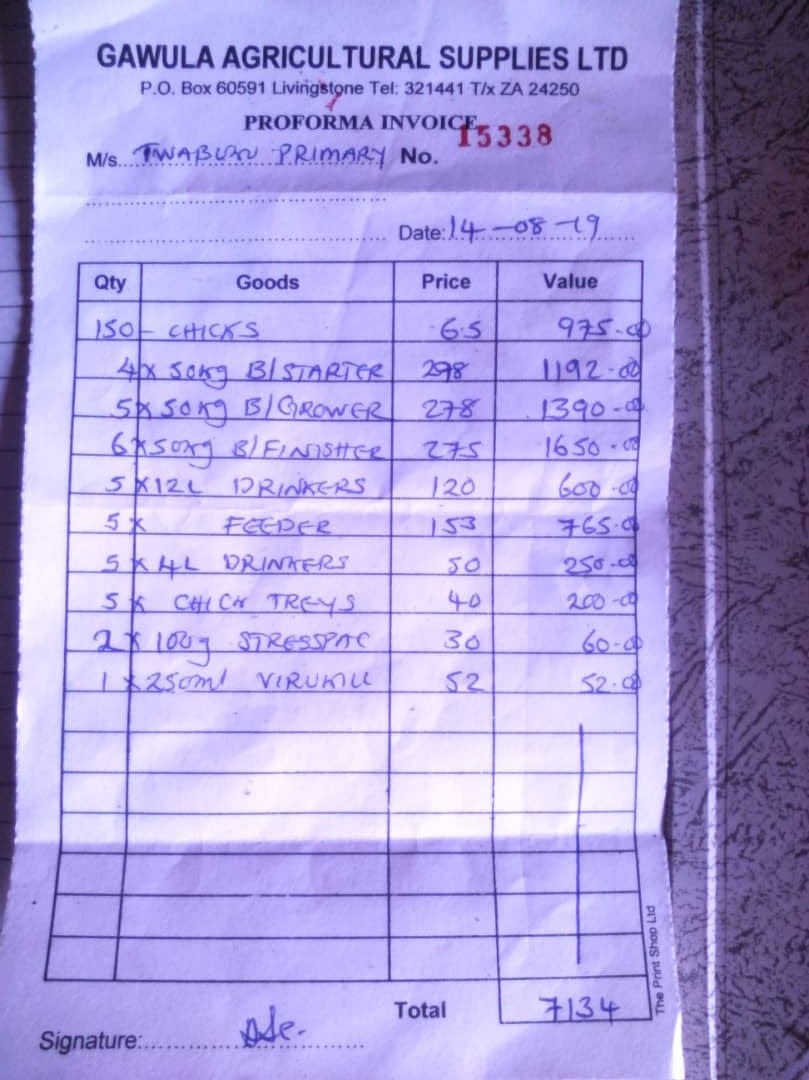 GAWULA AGRICULTURAL SUPPLIES LTD
P.O. Box 60591 Livingstone Tel: 321441 T/x ZA 24250
PROFORMA INVOICE
M/s. PRIMARY No. 15338
Date: 14-08-19
Qty Goods Price Value
150 - CHICKS 6.5 975.00
4 x 50kg B/STARTER 298 1192.00
5 x 50kg B/GROWER 278 1390.00
6 x 50kg B/FINISHER 275 1650.00
5 x 12L DRINKERS 120 600.00
5 x FEEDER 153 765.00
5 x 4L DRINKERS 50 250.00
5 x CHICK TREYS 40 200.00
2 x 100g STRESSPAC 30 60.00
1 x 250ml VIRUKILL 52 52.00
Total 7134
Signature:
The Print Shop Ltd